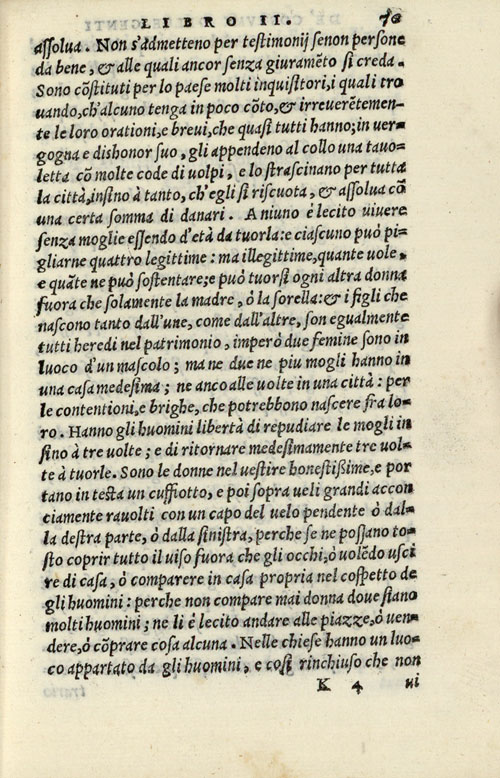 LIBRO II. 76
assolua. Non s'admetteno per testimonij senon persone
da bene, & alle quali ancor senza giuramẽto si creda.
Sono cõstituti per lo paese molti inquisitori, i quali tro
uando, ch'alcuno tenga in poco cõto, & irreuerẽtemen-
te le loro orationi, e brevi, che quasi tutti hanno; in ver-
gogna e dishonor suo, gli appendeno al collo una tauo-
letta cõ molte code di uolpi, e lo strascinano per tutta
la città, insino à tanto, ch'egli si riscuota, & assolua cõ
una certa somma di danari. A niuno é lecito uiuere
senza moglie essendo d'età da tuorla: e ciascuno può pi-
gliarne quattro legittime: ma illegittime, quante uole,
e quãte ne può sostentare; e può tuorsi ogni altra donna
fuora che solamente la madre, ò la sorella: & i figli che
nascono tanto dall'une, come dall'altre, son egualmente
tutti heredi nel patrimonio, imperò due femine sono in
luoco d'un mascolo; ma ne due ne piu mogli hanno in
una casa medesima; ne anco alle uolte in una città: per
le contentioni, e brighe, che potrebbono nascere fra lo-
ro. Hanno gli huomini libertà di repudiare le mogli in
sino à tre uolte; e di ritornare medesimamente tre uol-
te à tuorle. Sono le donne nel uestire honestißime, e por
tano in testa un cuffiotto, e poi sopra ueli grandi accon
ciamente rauolti con un capo del uelo pendente ò dal-
la destra parte, ò dalla sinistra, perche se ne possano to-
sto coprir tutto il uiso fuora che gli occhi, ò volẽdo usci
re di casa, ò comparere in casa propria nel cospetto de
gli huomini: perche non compare mai donna doue siano
molti huomini; ne li é lecito andare alle piazze, ò uen-
dere, ò cõprare cosa alcuna. Nelle chiese hanno un luo-
co appartato da gli huomini, e così rinchiuso che non
K 4 ui